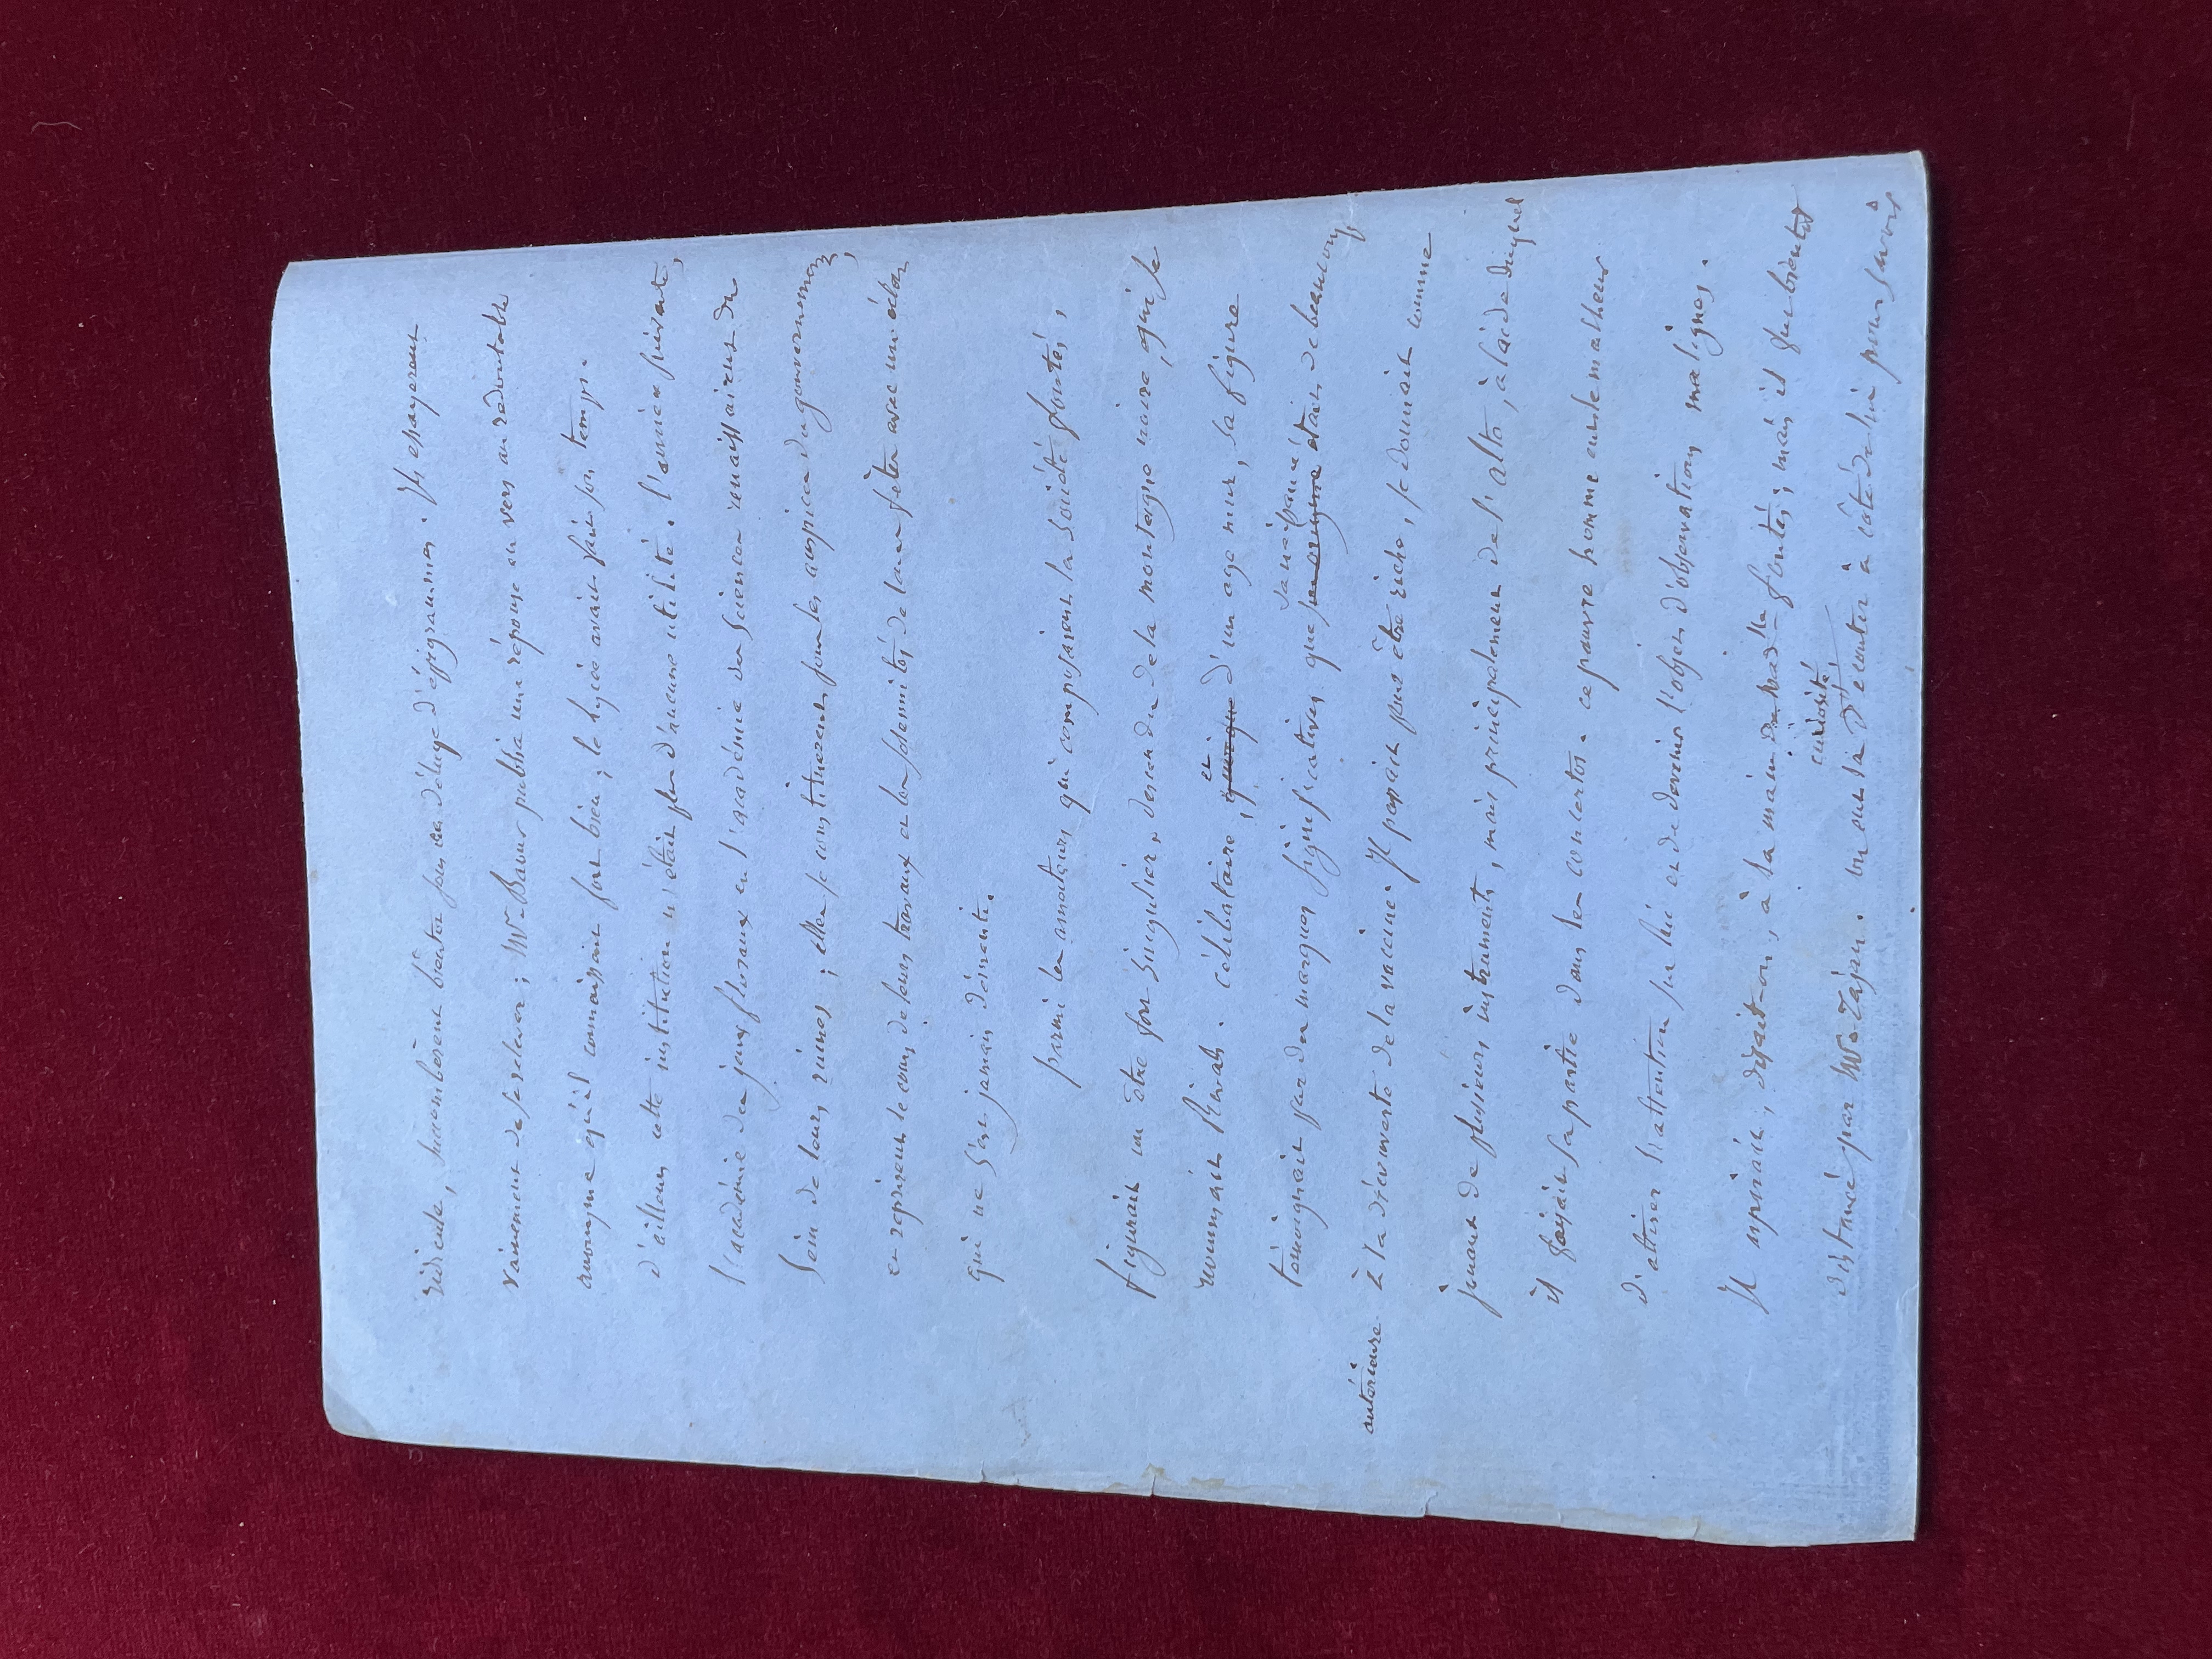 ridicule, succombèrent bientôt sous ce déluge d'épigrammes. Ils essayerent
vainement de se relever; Mr Baour publia une réponse en vers au redoutable
anonyme qu'il connaissait fort bien; le lycée avait fait son temps.
D'ailleurs cette institution n'était plus d'aucune utilité. l'année suivante,
l'académie des jeux floraux et l'académie des Sciences renaissaient du
sein de leurs ruines; elles se constituerent sous les auspices du gouvernement,
et reprirent le cours de leurs travaux et les solemnités de leurs fêtes avec un éclat
qui ne s'est jamais démenti.
parmi les amateurs qui composaient la Société
figurait un être fort singulier, descendu de la montagne noire, qui se
nommait célibataire, et quoique d'un age mur, sa figure
témoignait par des marques significatives que sa naissance son origine était de beaucoup
antérieure à la découverte de la vaccine. Il passait pour être riche, se donnait comme
jouant de plusieurs instruments, mais principalement de l'alto, à l'aide duquel
il faisait sa partie dans les concertos. ce pauvre homme eut le malheur
d'attirer l'attention sur lui et de devenir l'objet d'observations malignes.
Il aspirait, disait-on, à la main de mad.lle mais il fut bientôt
distancé par Mr Tajan. on eut la curiosité d'écouter à côté de lui pour savoir